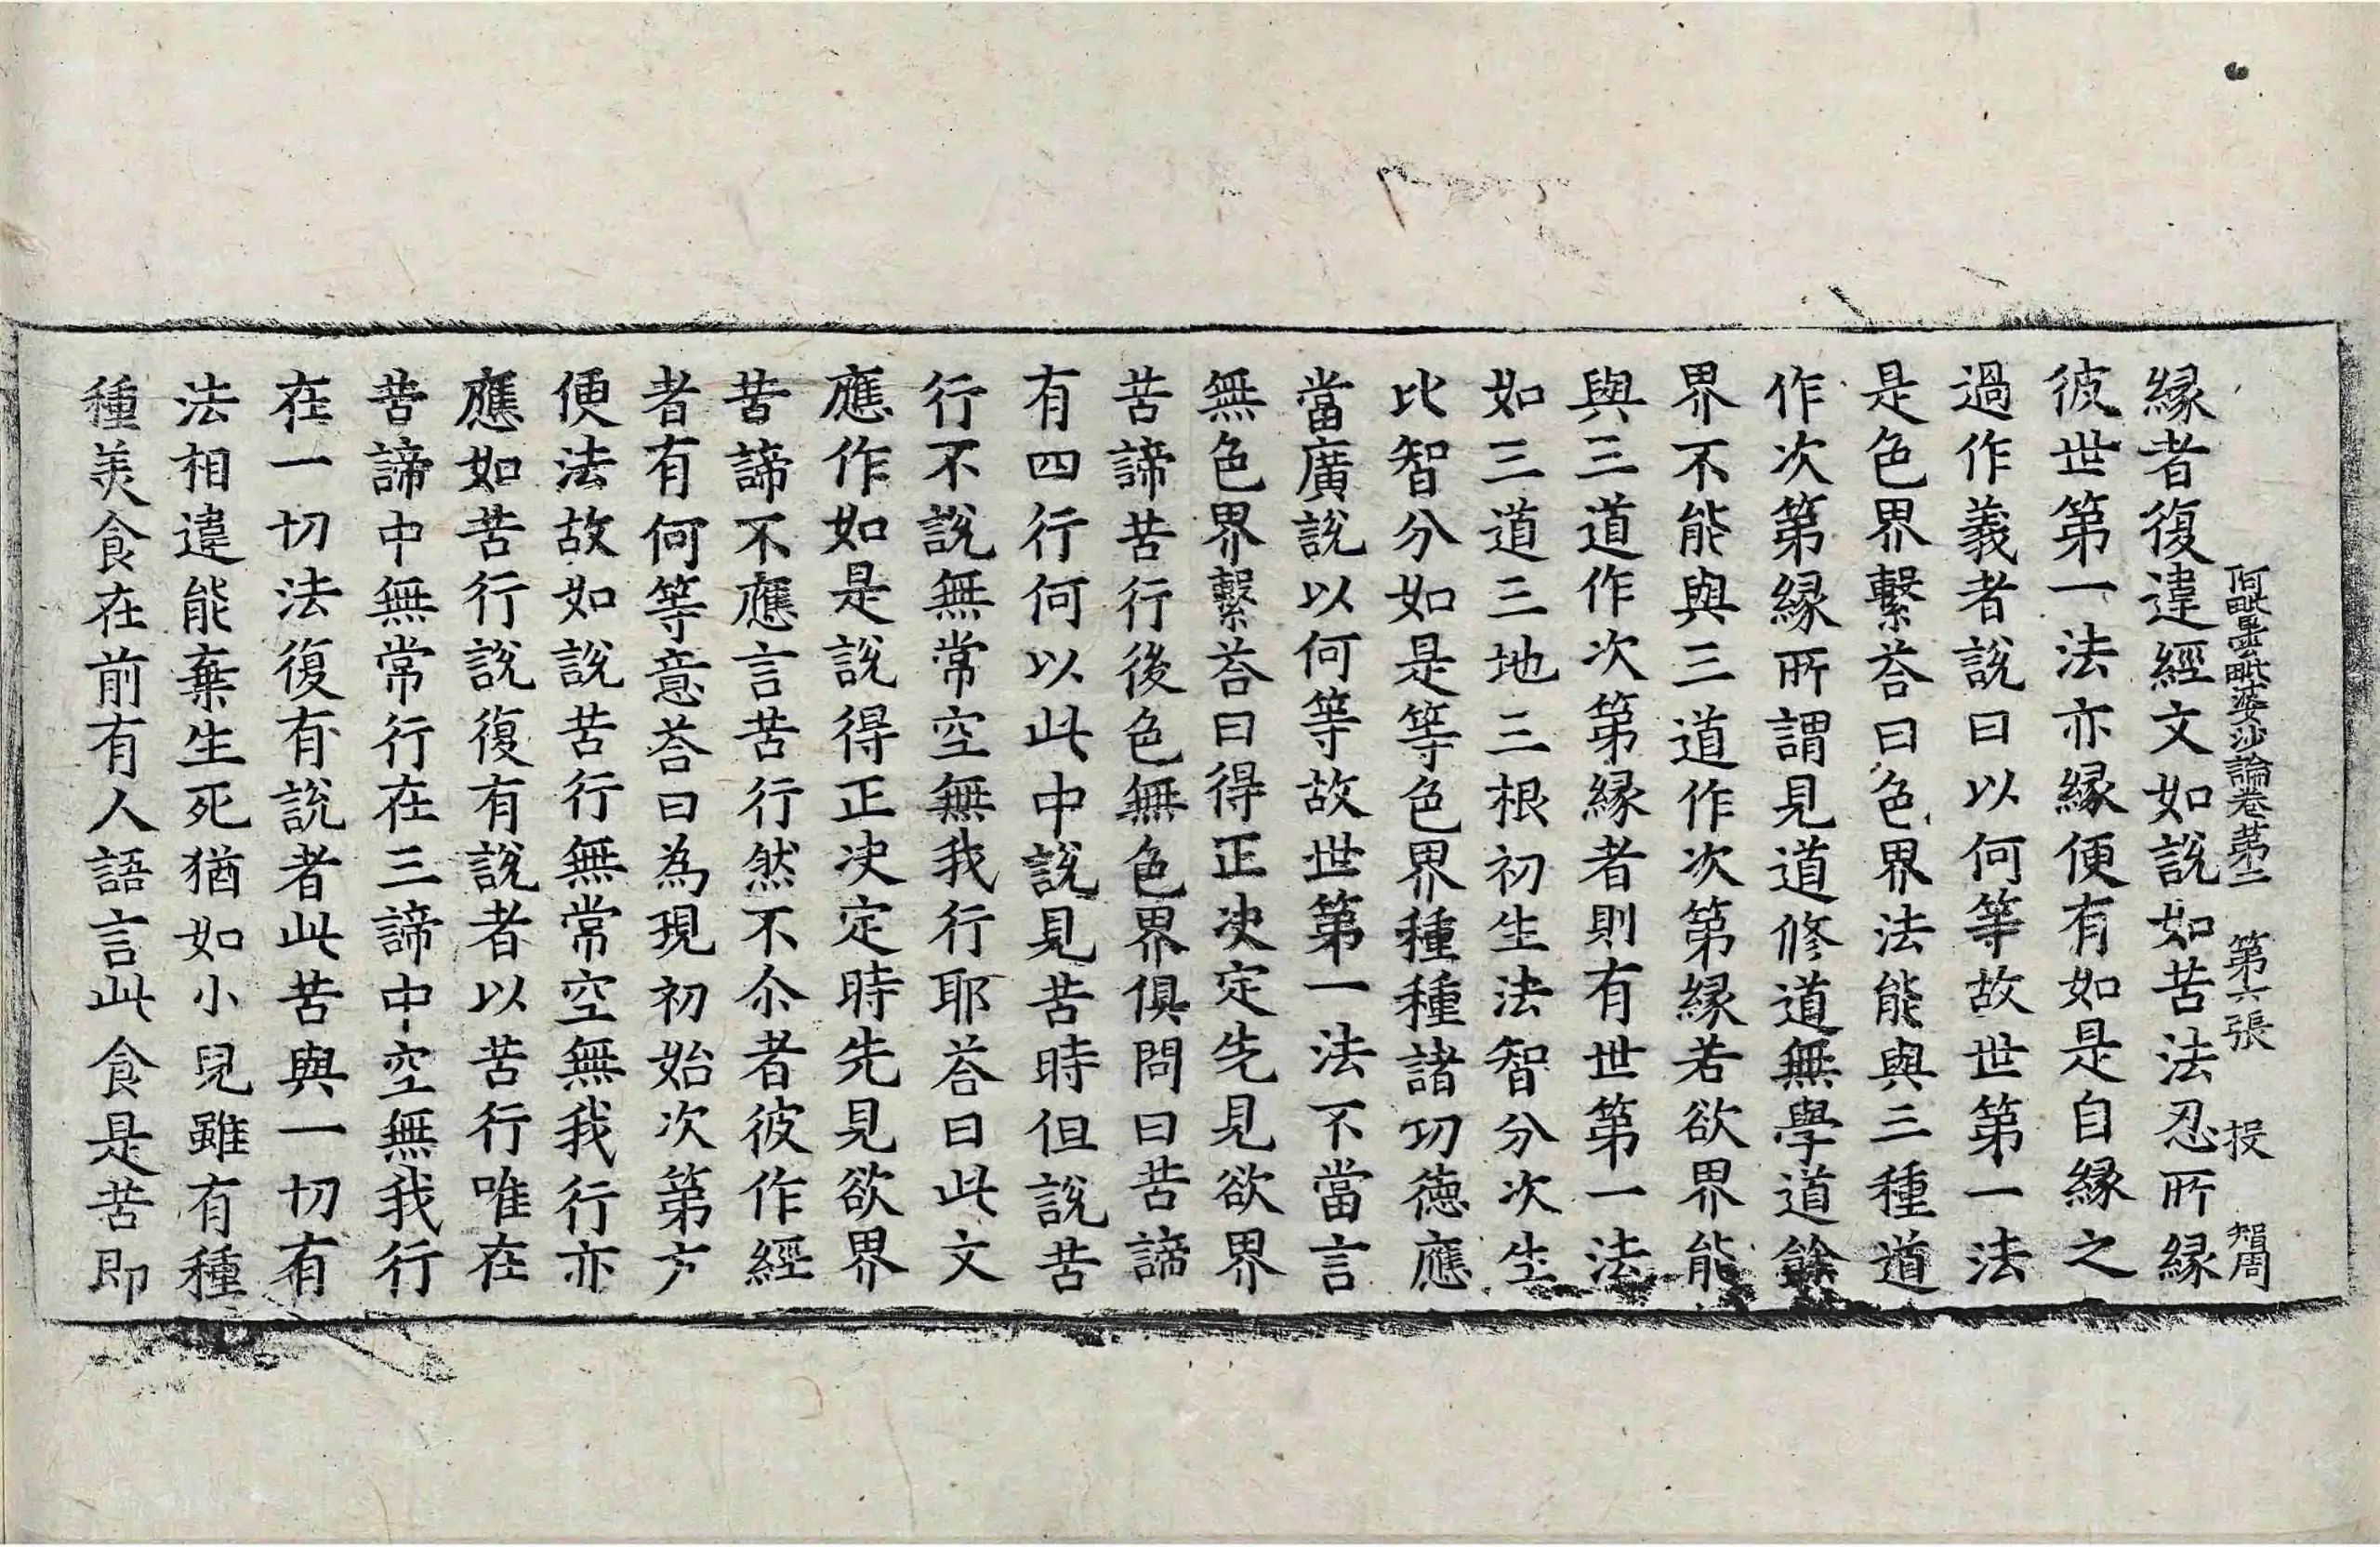 阿毗曇毗婆沙論卷第二 第六張 投 智周
緣者復違經文如說如苦法忍所緣
彼世第一法亦緣便有如是自緣之
過作義者說曰以何等故世第一法
是色界繫荅曰色界法能與三種道
作次第緣所謂見道修道無學道餘
界不能與三道作次第緣若欲界能
與三道作次第緣者則有世第一法
如三道三地三根初生法智分次生
比智分如是等色界種種諸功德應
當廣說以何等故世第一法不當言
無色界繫荅曰得正決定先見欲界
苦諦苦行後色無色界俱問曰苦諦
有四行何以此中說見苦時但說苦
行不說無常空無我行耶荅曰此文
應作如是說得正決定時先見欲界
苦諦不應言苦行然不尒者彼作經
者有何等意荅曰為現初始次第方
便法故如說苦行無常空無我行亦
應如苦行說復有說者以苦行唯在
苦諦中無常行在三諦中空無我行
在一切法復有說者此苦與一切有
法相違能棄生死猶如小兒雖有種
種美食在前有人語言此食是苦即